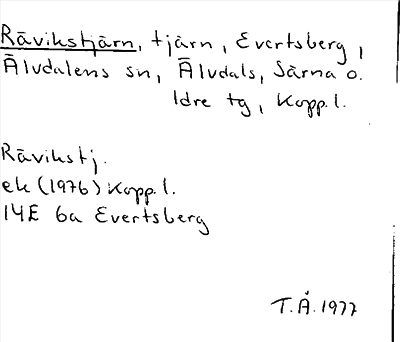 Rävikstjärn, tjärn, Evertsberg,
Älvdalens sn, Älvdals, Särna o.
Idre tg, Kopp.l.
Rävikstj.
ek (1976) Kopp.l.
14E 6a Evertsberg
T.Å. 1977